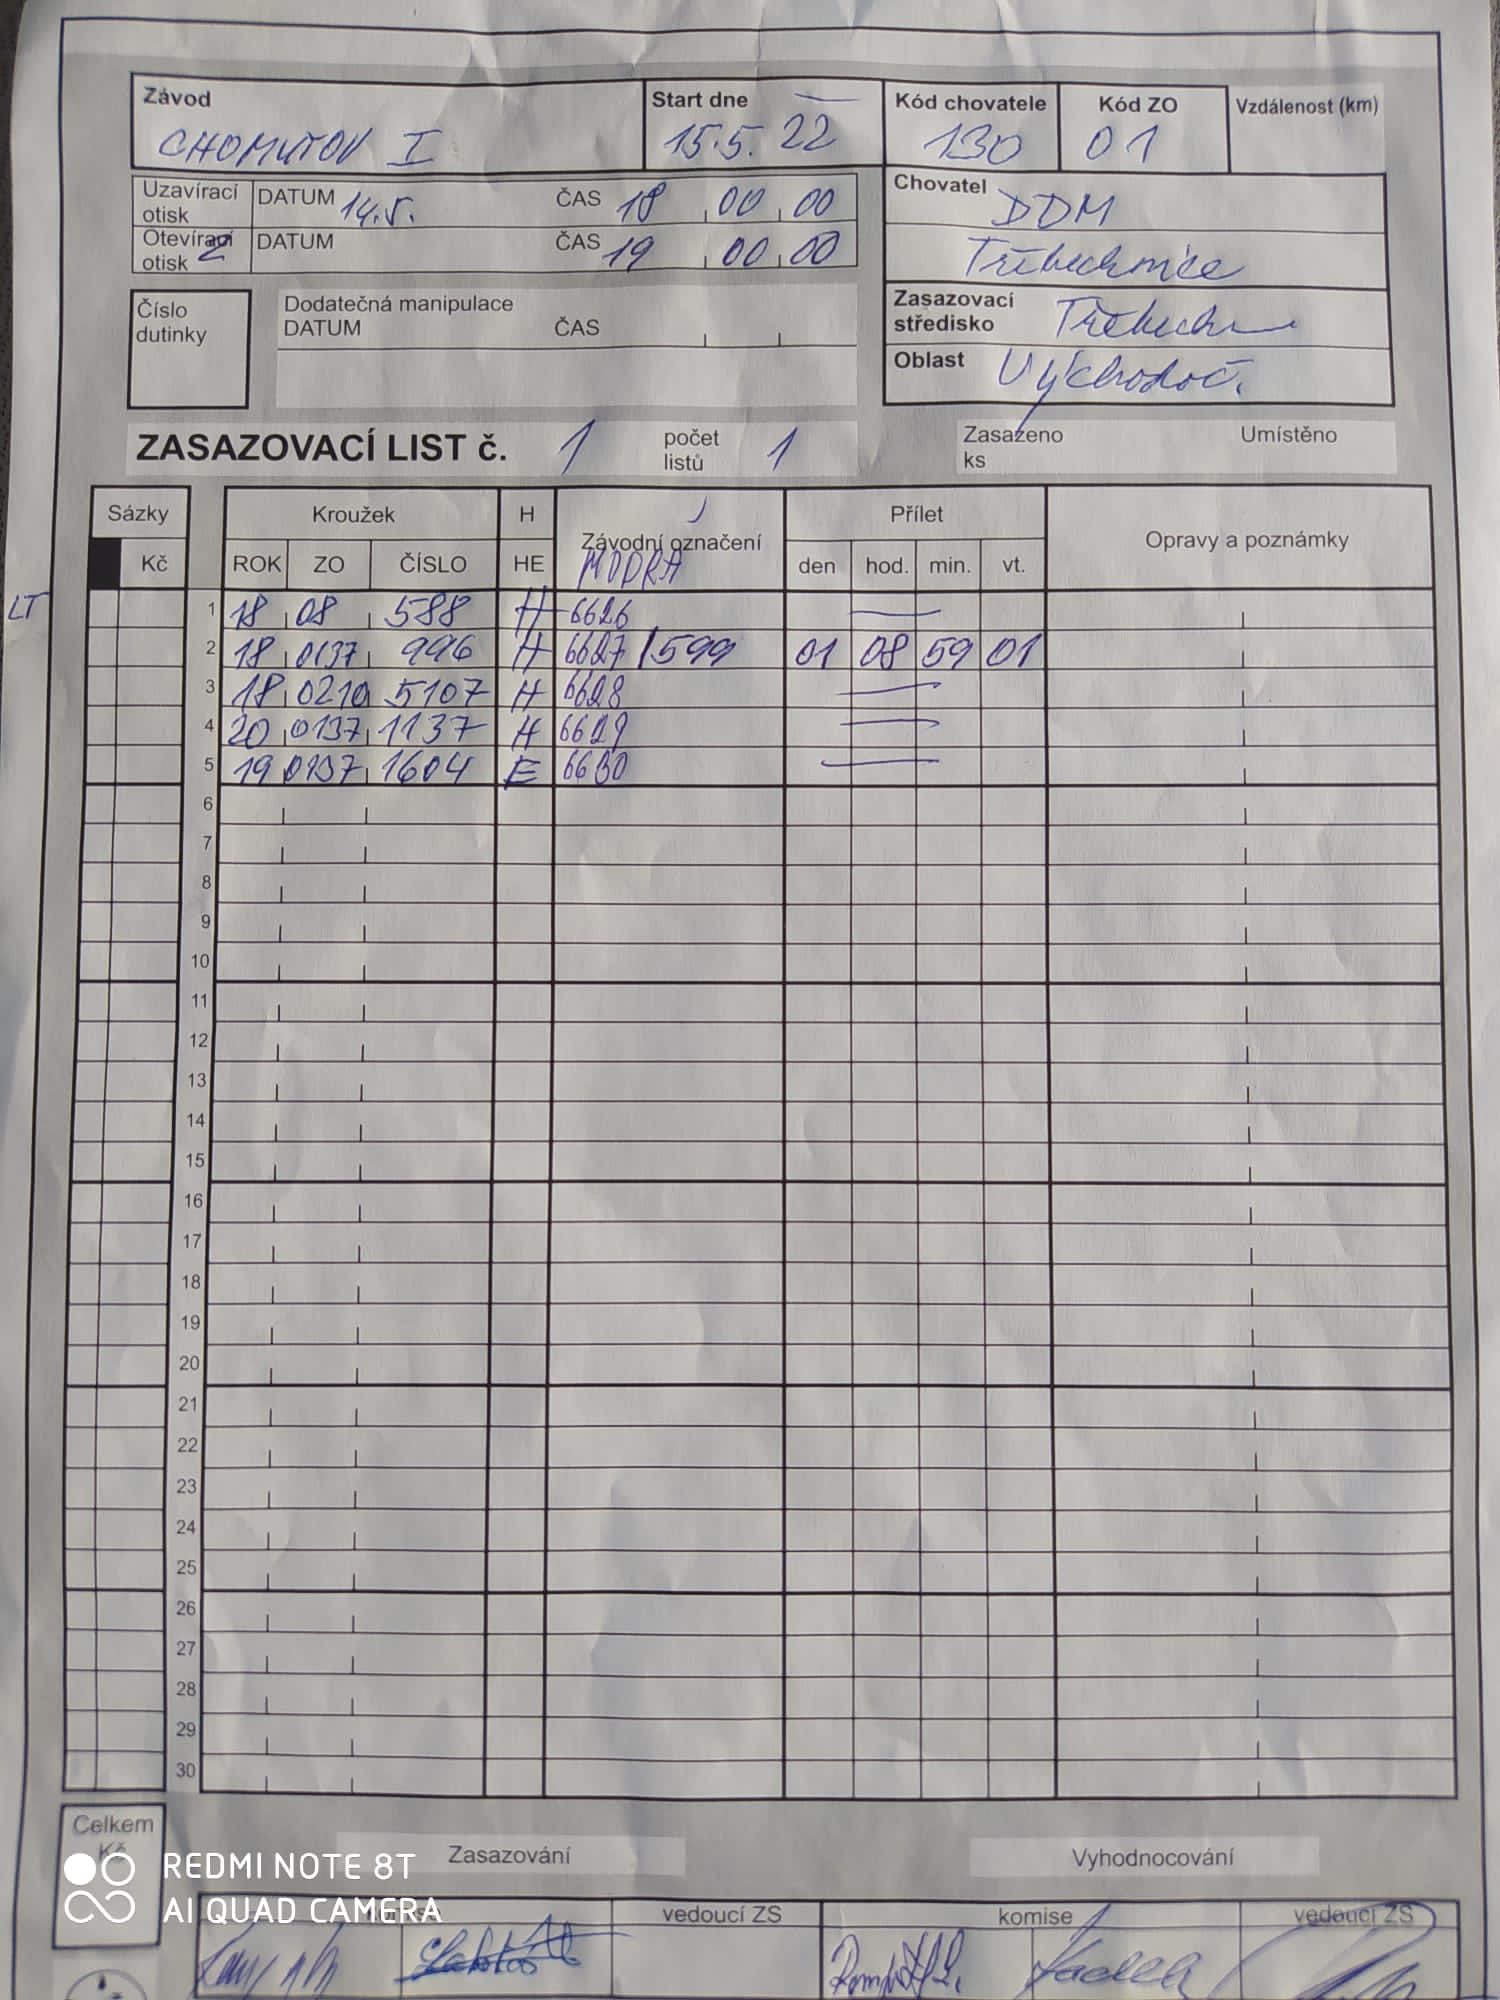 Závod Start dne Kód chovatele Kód ZO Vzdálenost (km)
CHOMUTOV I 15.5. 22 130 01
Uzavírací otisk DATUM 14.5. ČAS 18 00 00
Otevírací otisk 2 DATUM ČAS 19 00 00
Chovatel DDM
Třebechovice
Číslo dutinky
Dodatečná manipulace
DATUM ČAS
Zasazovací středisko
Oblast Východoč.
ZASAZOVACÍ LIST č. 1 počet listů 1 Zasazeno ks Umístěno
Sázky Kroužek H Závodní označení Přílet Opravy a poznámky
Kč ROK ZO ČÍSLO HE MODRÁ den hod. min. vt.
LT 1 18 08 588 H 6626
2 18 0137 996 H 6627/599 01 08 59 01
3 18 0210 5107 H 6628
4 20 0137 1137 H 6629
5 19 0137 1604 E 6630
6
7
8
9
10
11
12
13
14
15
16
17
18
19
20
21
22
23
24
25
26
27
28
29
30
Celkem Kč Zasazování Vyhodnocování
REDMI NOTE 8T
AI QUAD CAMERA
komise vedoucí ZS komise vedoucí ZS